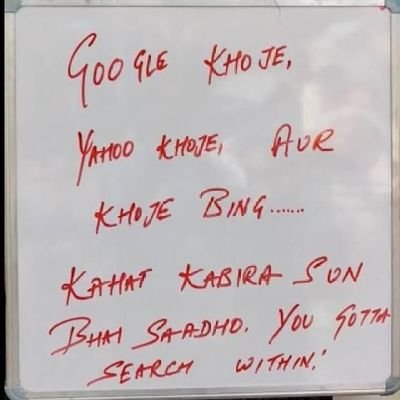 GOOGLE KHOJE,
YAHOO KHOJE, AUR
KHOJE BING......
KAHAT KABIRA SUN
BHAI SAADHO. YOU GOTTA
SEARCH WITHIN!